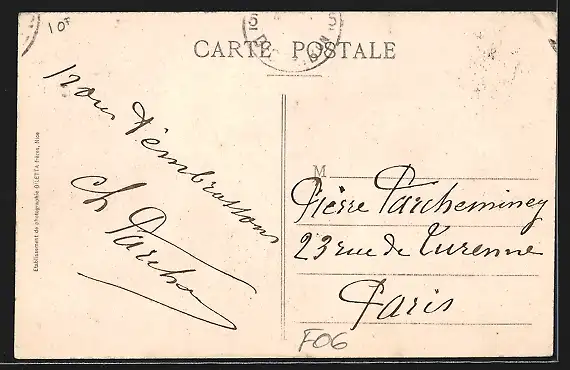 10F
5 5
CARTE POSTALE
nous t'embrassons
Ch Parche
Etablissement de photographie GILETTA frères, Nice
M
Pierre Parcheminey
23 rue de Turenne
Paris
F06